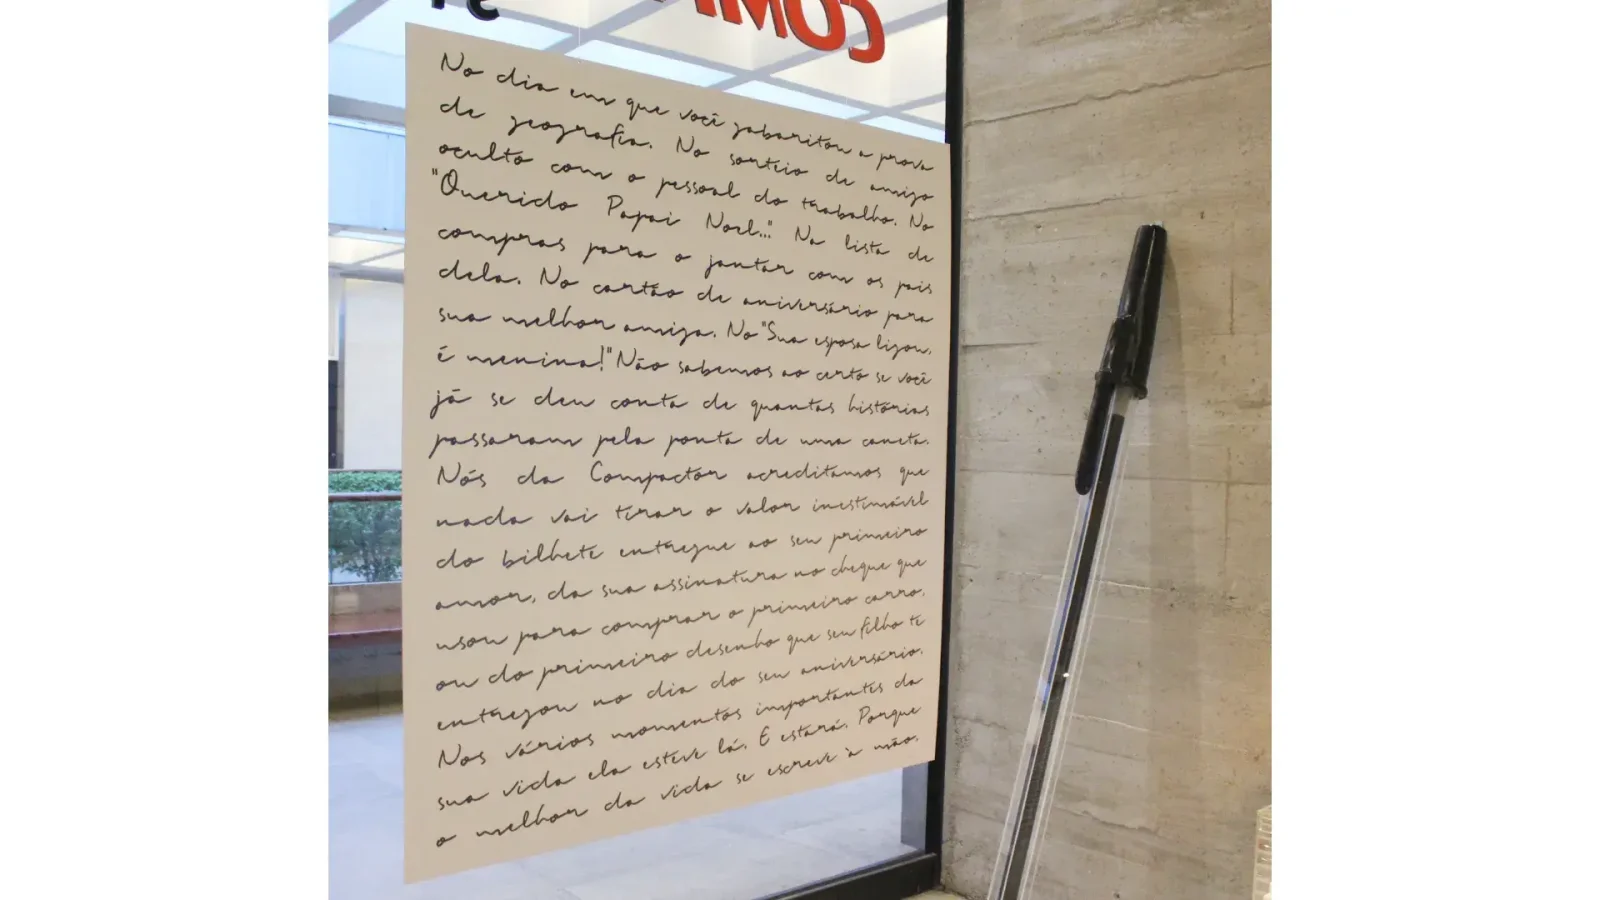 COMA
No dia em que você gabaritou a prova
de geografia. No sorteio de amigo
oculto com o pessoal do trabalho. No
"Querido Papai Noel..." Na lista de
compras para o jantar com os pais
dela. No cartão de aniversário para
sua melhor amiga. No "Sua esposa ligou,
é menina!" Não sabemos ao certo se você
já se deu conta de quantas histórias
passaram pela ponta de uma caneta.
Nós da Compactor acreditamos que
nada vai tirar o valor inestimável
do bilhete entregue ao seu primeiro
amor, da sua assinatura no cheque que
usou para comprar o primeiro carro,
ou do primeiro desenho que seu filho te
entregou no dia do seu aniversário.
Nos vários momentos importantes da
sua vida ela esteve lá. E estará. Porque
o melhor da vida se escreve à mão.